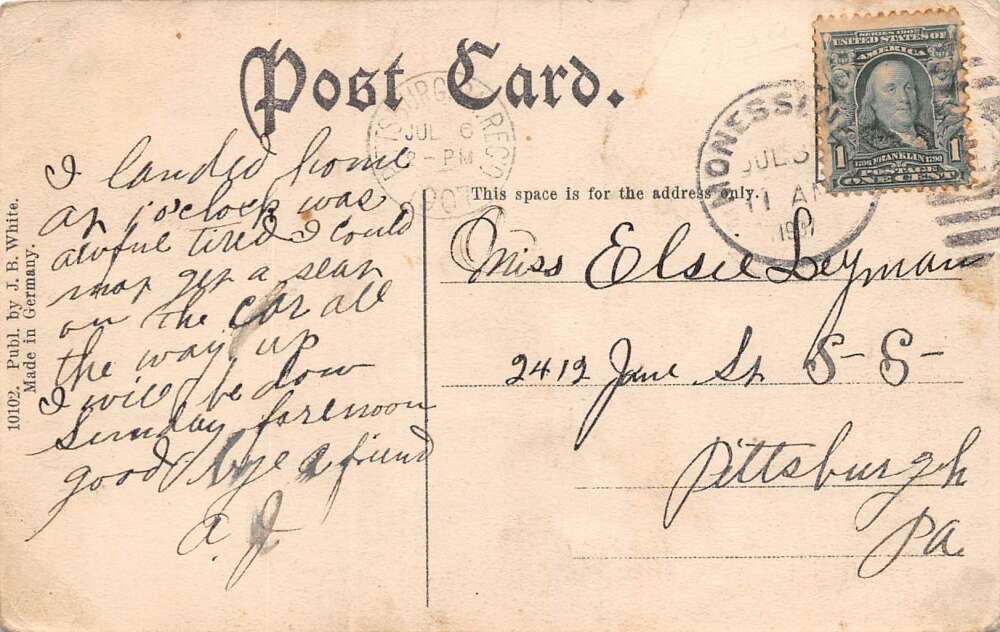 Post Card.
SERIES 1902
UNITED STATES OF
AMERICA
1
1706 FRANKLIN 1790
1
POSTAGE
ONE CENT
MONESSEN
JUL 5
11 AM
JUL 6
2 - PM
REC'D
This space is for the address only.
I landed home
at 1 o'clock was
awful tired I could
not get a seat
on the car all
the way up
I will be dow
Sunday forenoon
good bye a friend
a. J.
Miss Elsie Leyman
2412 Jane St S-S-
Pittsburgh
Pa.
10102. Publ. by J. B. White.
Made in Germany.